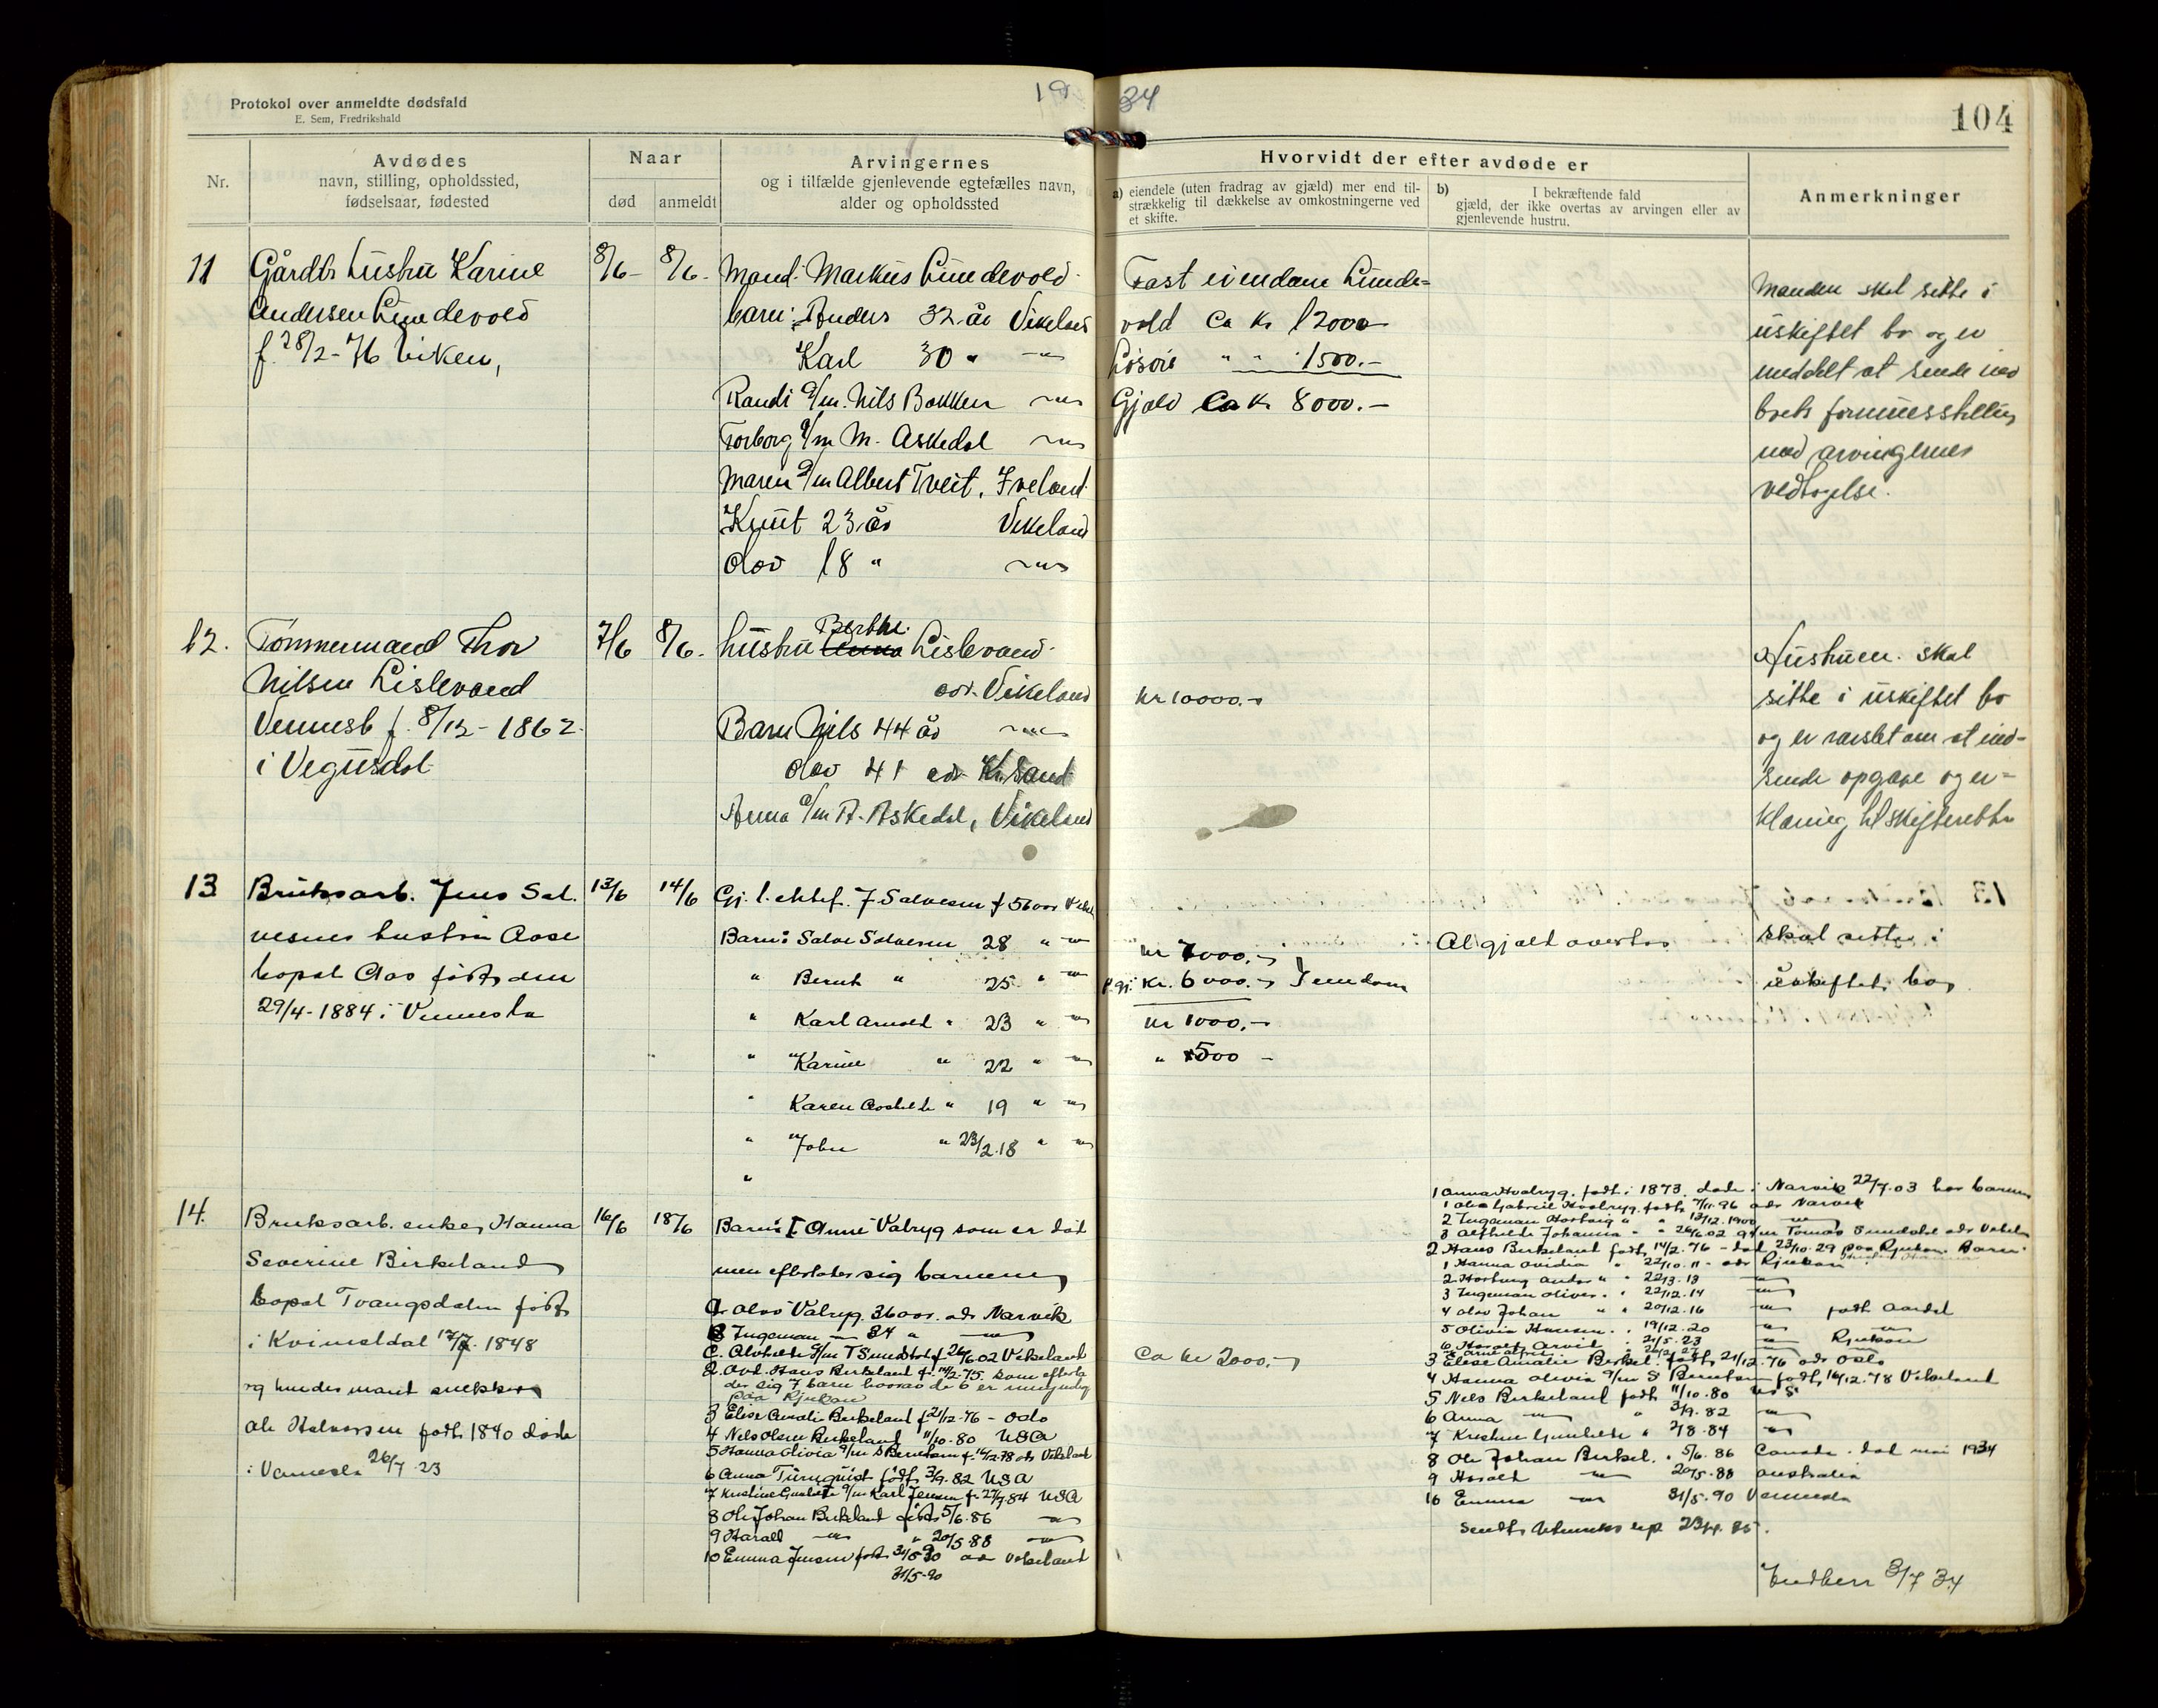 Protokol over anmeldte dødsfald
E. Sem, Fredrikshald
19 34
104
Nr.
Avdødes
navn, stilling, opholdssted,
fødselsaar, fødested
Naar
død
anmeldt
Arvingernes
og i tilfælde gjenlevende egtefælles navn,
alder og opholdssted
Hvorvidt der efter avdøde er
a) eiendele (uten fradrag av gjæld) mer end til-
strækkelig til dækkelse av omkostningerne ved
et skifte.
b) I bekræftende fald
gjæld, der ikke overtas av arvingen eller av
gjenlevende hustru.
Anmerkninger
11
Gårdbr hustru Karine
Andersen Lundevold
f. 28/2-76 Viken,
8/6-
8/6-
Mand: Markus Lundevold
barn: Anders 32 år Vikeland
Karl 30 " -"-
Randi g/m. Nils Bakken -"-
Torborg g/m M. Askedal -"-
Maren g/m Albert Tveit, Iveland
Knut 23 år Vikeland
Olov 18 " -"-
Fast eiendom Lunde-
vold ca kr 12000
Løsøre " " 1500.-
Gjæld ca kr 8000.-
Manden skal sitte i
uskiftet bo og er
meddelt at sende ind
boets formuesstilling
med arvingernes
vedtagelse.
12.
Tømmermand Thor
Nilsen Lislevand
Vennesl f. 8/12-1862
i Vegusdal
7/6
8/6-
Berthe
hustru Lislevand
adr. Vikeland
Barn Nils 44 år -"-
Olov 41 adr Kr.sand
Anna g/m A. Askedal, Vikeland
kr 10000.-
Hustruen skal
sitte i uskiftet bo
og er varslet om at ind-
sende opgave og er-
klæring til skifteretten
13
Bruksarb. Jens Sal.
vesens hustru Aase
bopal Aas født den
29/4-1884 i Vennesla
13/6
14/6
Gj. l. ektef. J Salvesen f 56 aar
Barn: Salve Salvesen 28 " -"-
" Bernt " 25 " -"-
" Karl Arnold " 23 " -"-
" Karine " 22 " -"-
" Karen " 19 " -"-
" John " 23/2.18 " -"-
"
kr 7000.-
kr. 6000.- Eiendom
kr 1000.-
" 500 -
Al gjæld overtas
Skal sitte i
uskiftet bo
14.
Bruksarb. enke Hanna
Severine Birkeland
bopal Tvangsdalen født
i Kvinesdal 1848
og hendes mand snekker
Ole Halvorsen født 1840 døde
i Vennesla 26/7 23
16/6
18/6
Barn: I Anne Valryg som er død
men efterlater sig barnene
a Olav Valryg 36 aar. adr Narvik
B Ingeman -"- 34 " -"-
C. Alvhilde g/m T Sundstøl f 26/6 02 Vikeland
2 Avd. Hans Birkeland f. 14/2-75 som efterla
der sig 7 barn hvorav de 6 er umyndig
paa Rjukan
3 Elise Amalie Birkeland f 21/12-76 - Oslo
4 Nels Olsen Birkeland 11/10-80 USA
5 Hanna Olivia g/m S Berntsen f. 16/12-78 adr Vikeland
6 Anna Turnquist født 3/9-82 USA
7 Kristine g/m Karl Jensen f. 27/8-84 USA
8 Ole Johan Birkeland født 5/6-86 -"-
9 Harald -"- " 20/5-88 -"-
10 Emma Jensen født 31/5 90 adr Vikeland
31/5-90
ca kr 2000.-
1 Anna Hvalryg. født i 1873 døde i Narvik 22/7-03 har barnene
1 Ole Gabriel Hvalryg. født 7/11-96 adr Narvik
2 Ingeman " " 13/12.1900 -"-
3 Alfhilde Johanna " " 26/6.02 g/m Tomas Sundstøl adr Vikeland
2 Hans Birkeland født 14/2-76 - død 23/10-29 paa Rjukan. Barn:
1 Hanna Ovidia " 22/10-11 - adr Rjukan
2 Hartvig Andor " " 22/3-13 -"-
3 Ingeman Oliver " " 22/12.14 -"-
4 Olav Johan " " 20/12.16 -"- født Aardal
5 Olivia Hansen " 19/12.20 -"- -"-
6 Harald Arvid " 21/5-23 -"- Rjukan
3 Elise Amalie Birkel. født 21/12-76 adr Oslo
4 Hanna Olivia g/m S Berntsen født 16/12.78 Vikeland
5 Nels Birkeland født 11/10-80
6 Anna -"- " 3/9-82 -"-
7 Kristine Gunhilde " 27/8-84 -"-
8 Ole Johan Birkel. " 5/6-86 Canada død mai 1934
9 Harald -"- 20/5-88 Australia
10 Emma -"- 31/5-90 Vennesla
3/7 34